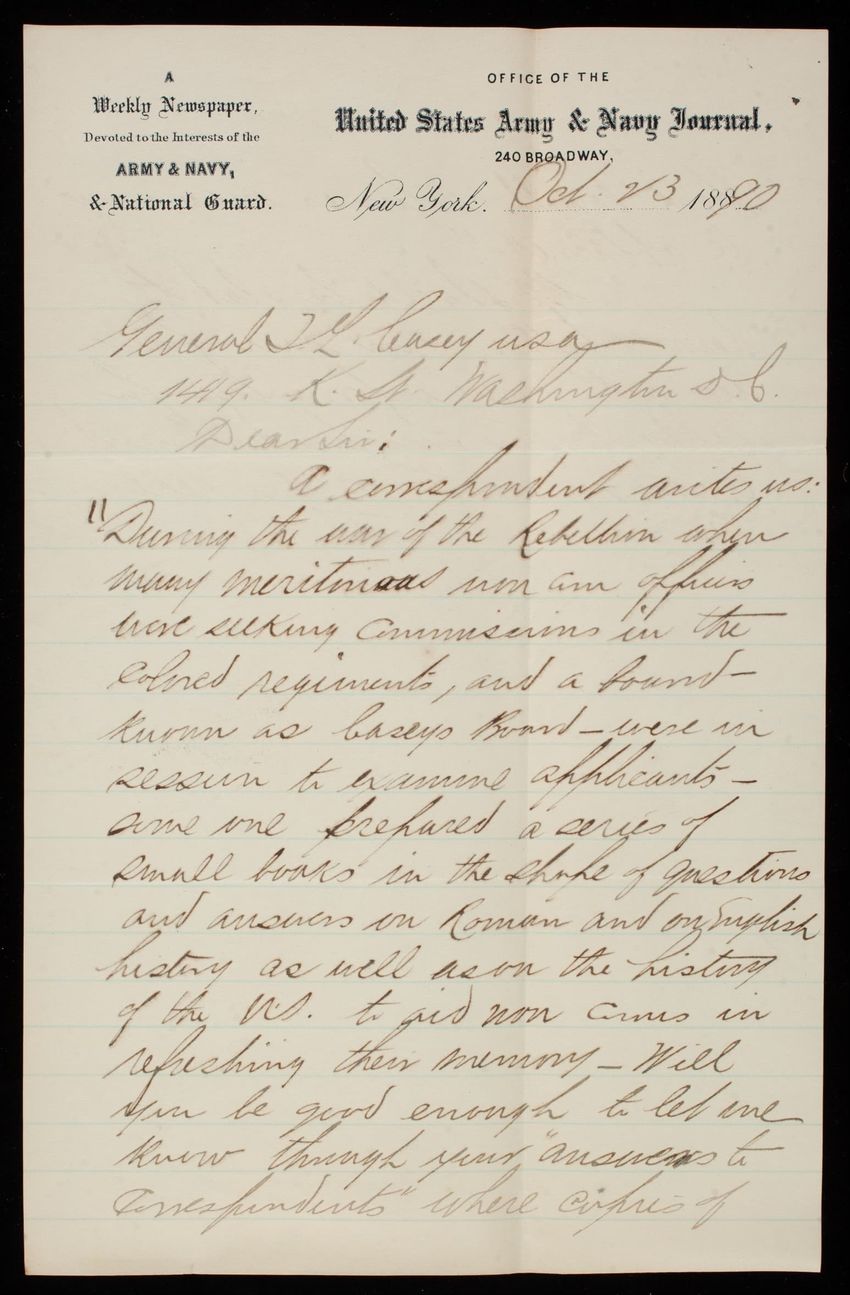 A
Weekly Newspaper,
Devoted to the Interests of the
ARMY & NAVY,
& National Guard.
OFFICE OF THE
United States Army & Navy Journal.
240 BROADWAY,
New York. Oct. 23 1890
General T L Casey usa
1419. K. St. Washington D.C.
Dear Sir:
A correspondent writes us:
"During the war of the Rebellion when
many meritorious non com officers
were seeking commissions in the
colored regiments, and a board—
known as Caseys Board—were in
session to examine applicants—
some one prepared a series of
small books in the shape of questions
and answers on Roman and on English
history as well as on the history
of the U.S. to aid non coms in
refreshing their memory—Will
you be good enough to let me
know through your "answers to
correspondents" where copies of